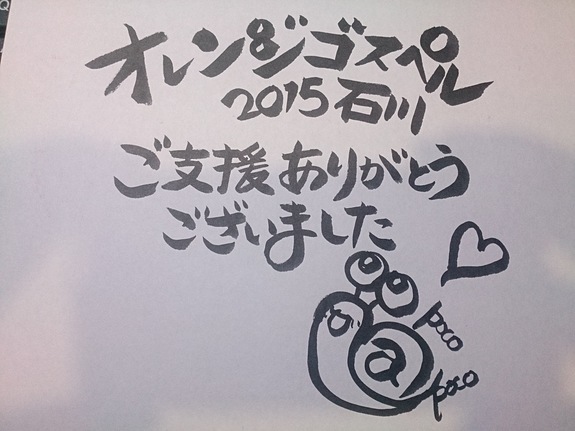 オレンジゴスペル
2015 石川
ご支援ありがとう
ございました
a
poco
poco